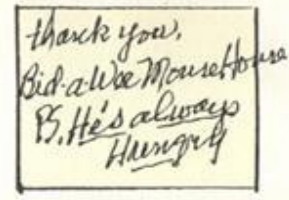 thank you,
Bid-a-Wee Mouse House
PS. He's always
Hungry